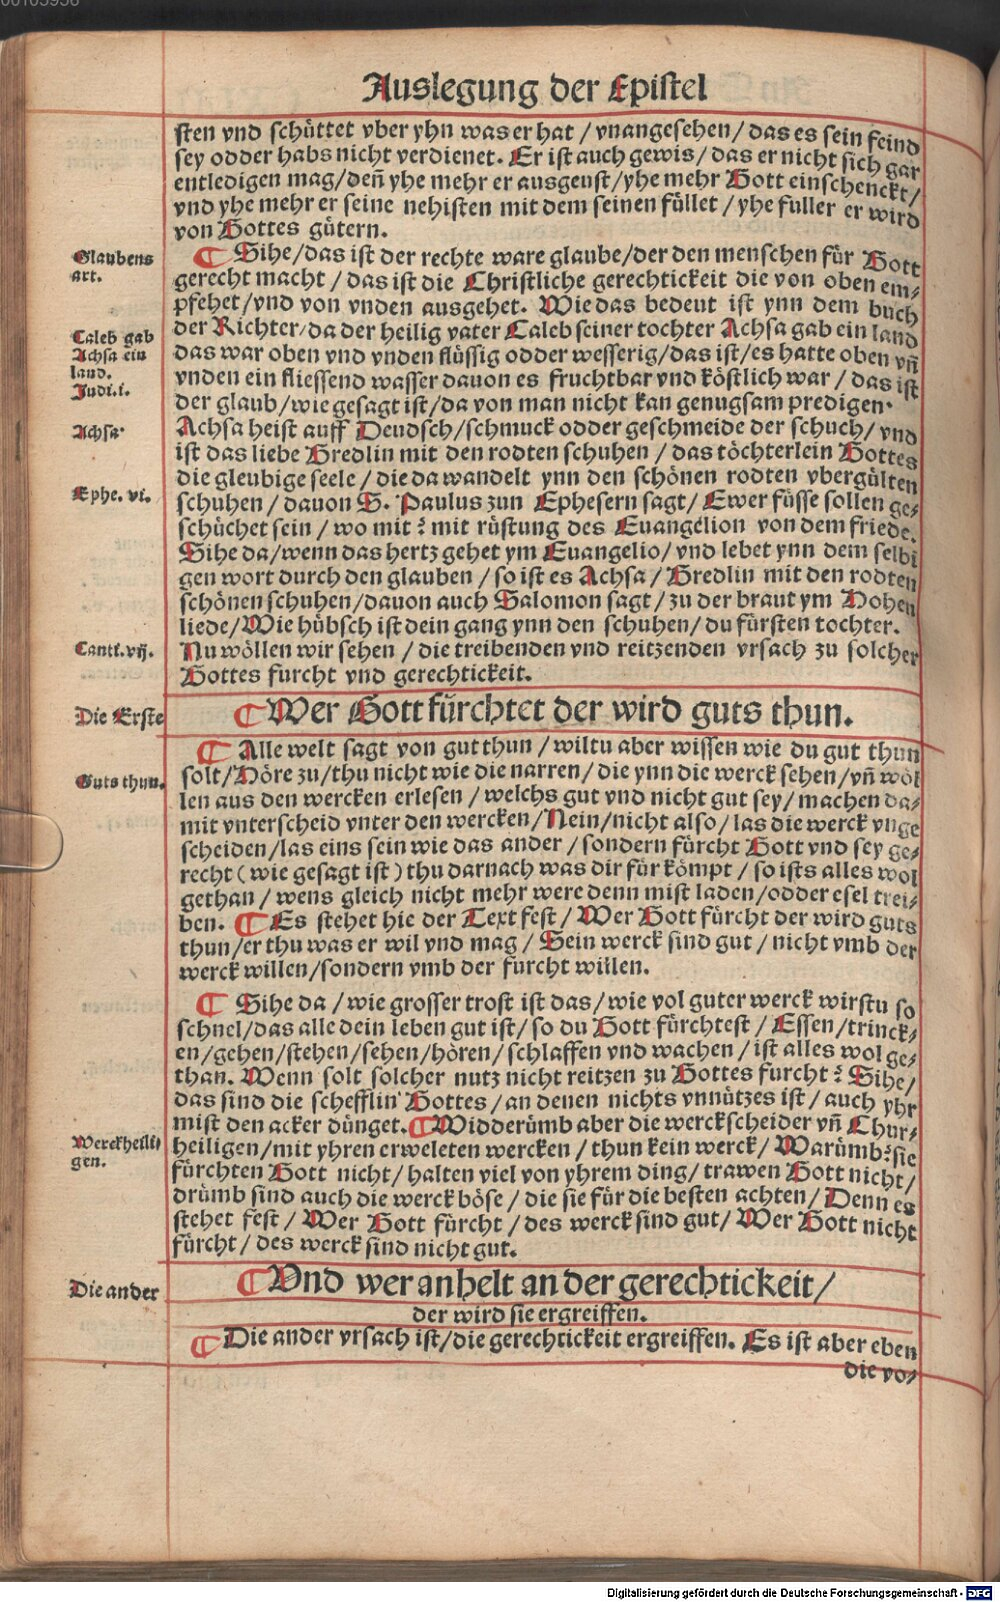 Auslegung der Epistel
sten vnd schüttet vber yhn was er hat / vnangesehen / das es sein feind
sey odder habs nicht verdienet. Er ist auch gewis / das er nicht sich gar
entledigen mag / deñ yhe mehr er ausgeust / yhe mehr Gott einschenckt /
vnd yhe mehr er seine nehisten mit dem seinen füllet / yhe fuller er wird
von Gottes gütern.
Glaubens
art.
¶ Sihe / das ist der rechte ware glaube / der den menschen für Gott
gerecht macht / das ist die Christliche gerechtickeit die von oben em⸗
pfehet / vnd von vnden ausgehet. Wie das bedeut ist ynn dem buch
Caleb gab
Achsa ein
land.
Judi. i.
der Richter / da der heilig vater Caleb seiner tochter Achsa gab ein land
das war oben vnd vnden flüssig odder wesserig / das ist / es hatte oben vñ
vnden ein fliessend wasser dauon es fruchtbar vnd köstlich war / das ist
der glaub / wie gesagt ist / da von man nicht kan genugsam predigen.
Achsa.
Achsa heist auff Deudsch / schmuck odder geschmeide der schuch / vnd
ist das liebe Gredlin mit den rodten schuhen / das töchterlein Gottes
die gleubige seele / die da wandelt ynn den schönen rodten vbergülten
Ephe. vi.
schuhen / dauon S. Paulus zun Ephesern sagt / Ewer füsse sollen ge⸗
schüchet sein / wo mit? mit rüstung des Euangelion von dem friede.
Sihe da / wenn das hertz gehet ym Euangelio / vnd lebet ynn dem selbi
gen wort durch den glauben / so ist es Achsa / Gredlin mit den rodten
schönen schuhen / dauon auch Salomon sagt / zu der braut ym Hohen
liede / Wie hübsch ist dein gang ynn den schuhen / du fürsten tochter.
Canti. vij.
Nu wöllen wir sehen / die treibenden vnd reitzenden vrsach zu solcher
Gottes furcht vnd gerechtickeit.
Die Erste
¶ Wer Gott fürchtet der wird guts thun.
¶ Alle welt sagt von gut thun / wiltu aber wissen wie du gut thun
Guts thun.
solt / Höre zu / thu nicht wie die narren / die ynn die werck sehen / vñ wöl
len aus den wercken erlesen / welchs gut vnd nicht gut sey / machen da⸗
mit vnterscheid vnter den wercken / Nein / nicht also / las die werck vnge
scheiden / las eins sein wie das ander / sondern fürcht Gott vnd sey ge⸗
recht ( wie gesagt ist ) thu darnach was dir für kömpt / so ists alles wol
gethan / wens gleich nicht mehr were denn mist laden / odder esel trei⸗
ben. ¶ Es stehet hie der Text fest / Wer Gott fürcht der wird guts
thun / er thu was er wil vnd mag / Sein werck sind gut / nicht vmb der
werck willen / sondern vmb der furcht willen.
¶ Sihe da / wie grosser trost ist das / wie vol guter werck wirstu so
schnel / das alle dein leben gut ist / so du Gott fürchtest / Essen / trinck⸗
en / gehen / stehen / sehen / hören / schlaffen vnd wachen / ist alles wol ge⸗
than. Wenn solt solcher nutz nicht reitzen zu Gottes furcht? Sihe /
das sind die schefflin Gottes / an denen nichts vnnützes ist / auch yhr
mist den acker dünget. ¶ Widderümb aber die werckscheider vñ Chur⸗
Werckheili
gen.
heiligen / mit yhren erweleten wercken / thun kein werck / Warümb? sie
fürchten Gott nicht / halten viel von yhrem ding / trawen Gott nicht /
drümb sind auch die werck böse / die sie für die besten achten / Denn es
stehet fest / Wer Gott fürcht / des werck sind gut / Wer Gott nicht
fürcht / des werck sind nicht gut.
Die ander
¶ Vnd wer anhelt an der gerechtickeit /
der wird sie ergreiffen.
¶ Die ander vrsach ist / die gerechtickeit ergreiffen. Es ist aber eben
die vo⸗
Digitalisierung gefördert durch die Deutsche Forschungsgemeinschaft - DFG